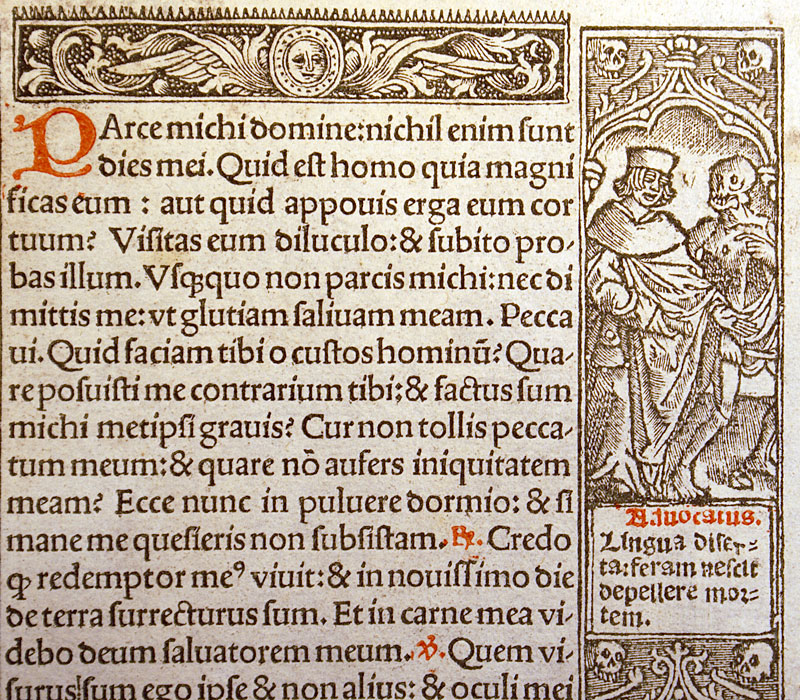 PArce michi domine: nichil enim sunt
dies mei. Quid est homo quia magni
ficas eum : aut quid apponis erga eum cor
tuum? Visitas eum diluculo: & subito pro-
bas illum. Vsqꝫquo non parcis michi: nec di
mittis me: vt glutiam saliuam meam. Pecca
ui. Quid faciam tibi o custos hominū? Qua-
re posuisti me contrarium tibi: & factus sum
michi metipsi grauis? Cur non tollis pecca-
tum meum: & quare nō aufers iniquitatem
meam? Ecce nunc in puluere dormio: & si
mane me quesieris non subsistam. ℟. Credo
ꝙ redemptor meꝰ viuit: & in nouissimo die
de terra surrecturus sum. Et in carne mea vi-
debo deum saluatorem meum. ℣. Quem vi-
surus sum ego ipse & non alius: & oculi mei
Aduocatus.
Lingua diser-
ta: feram nescit
depellere mor-
tem.